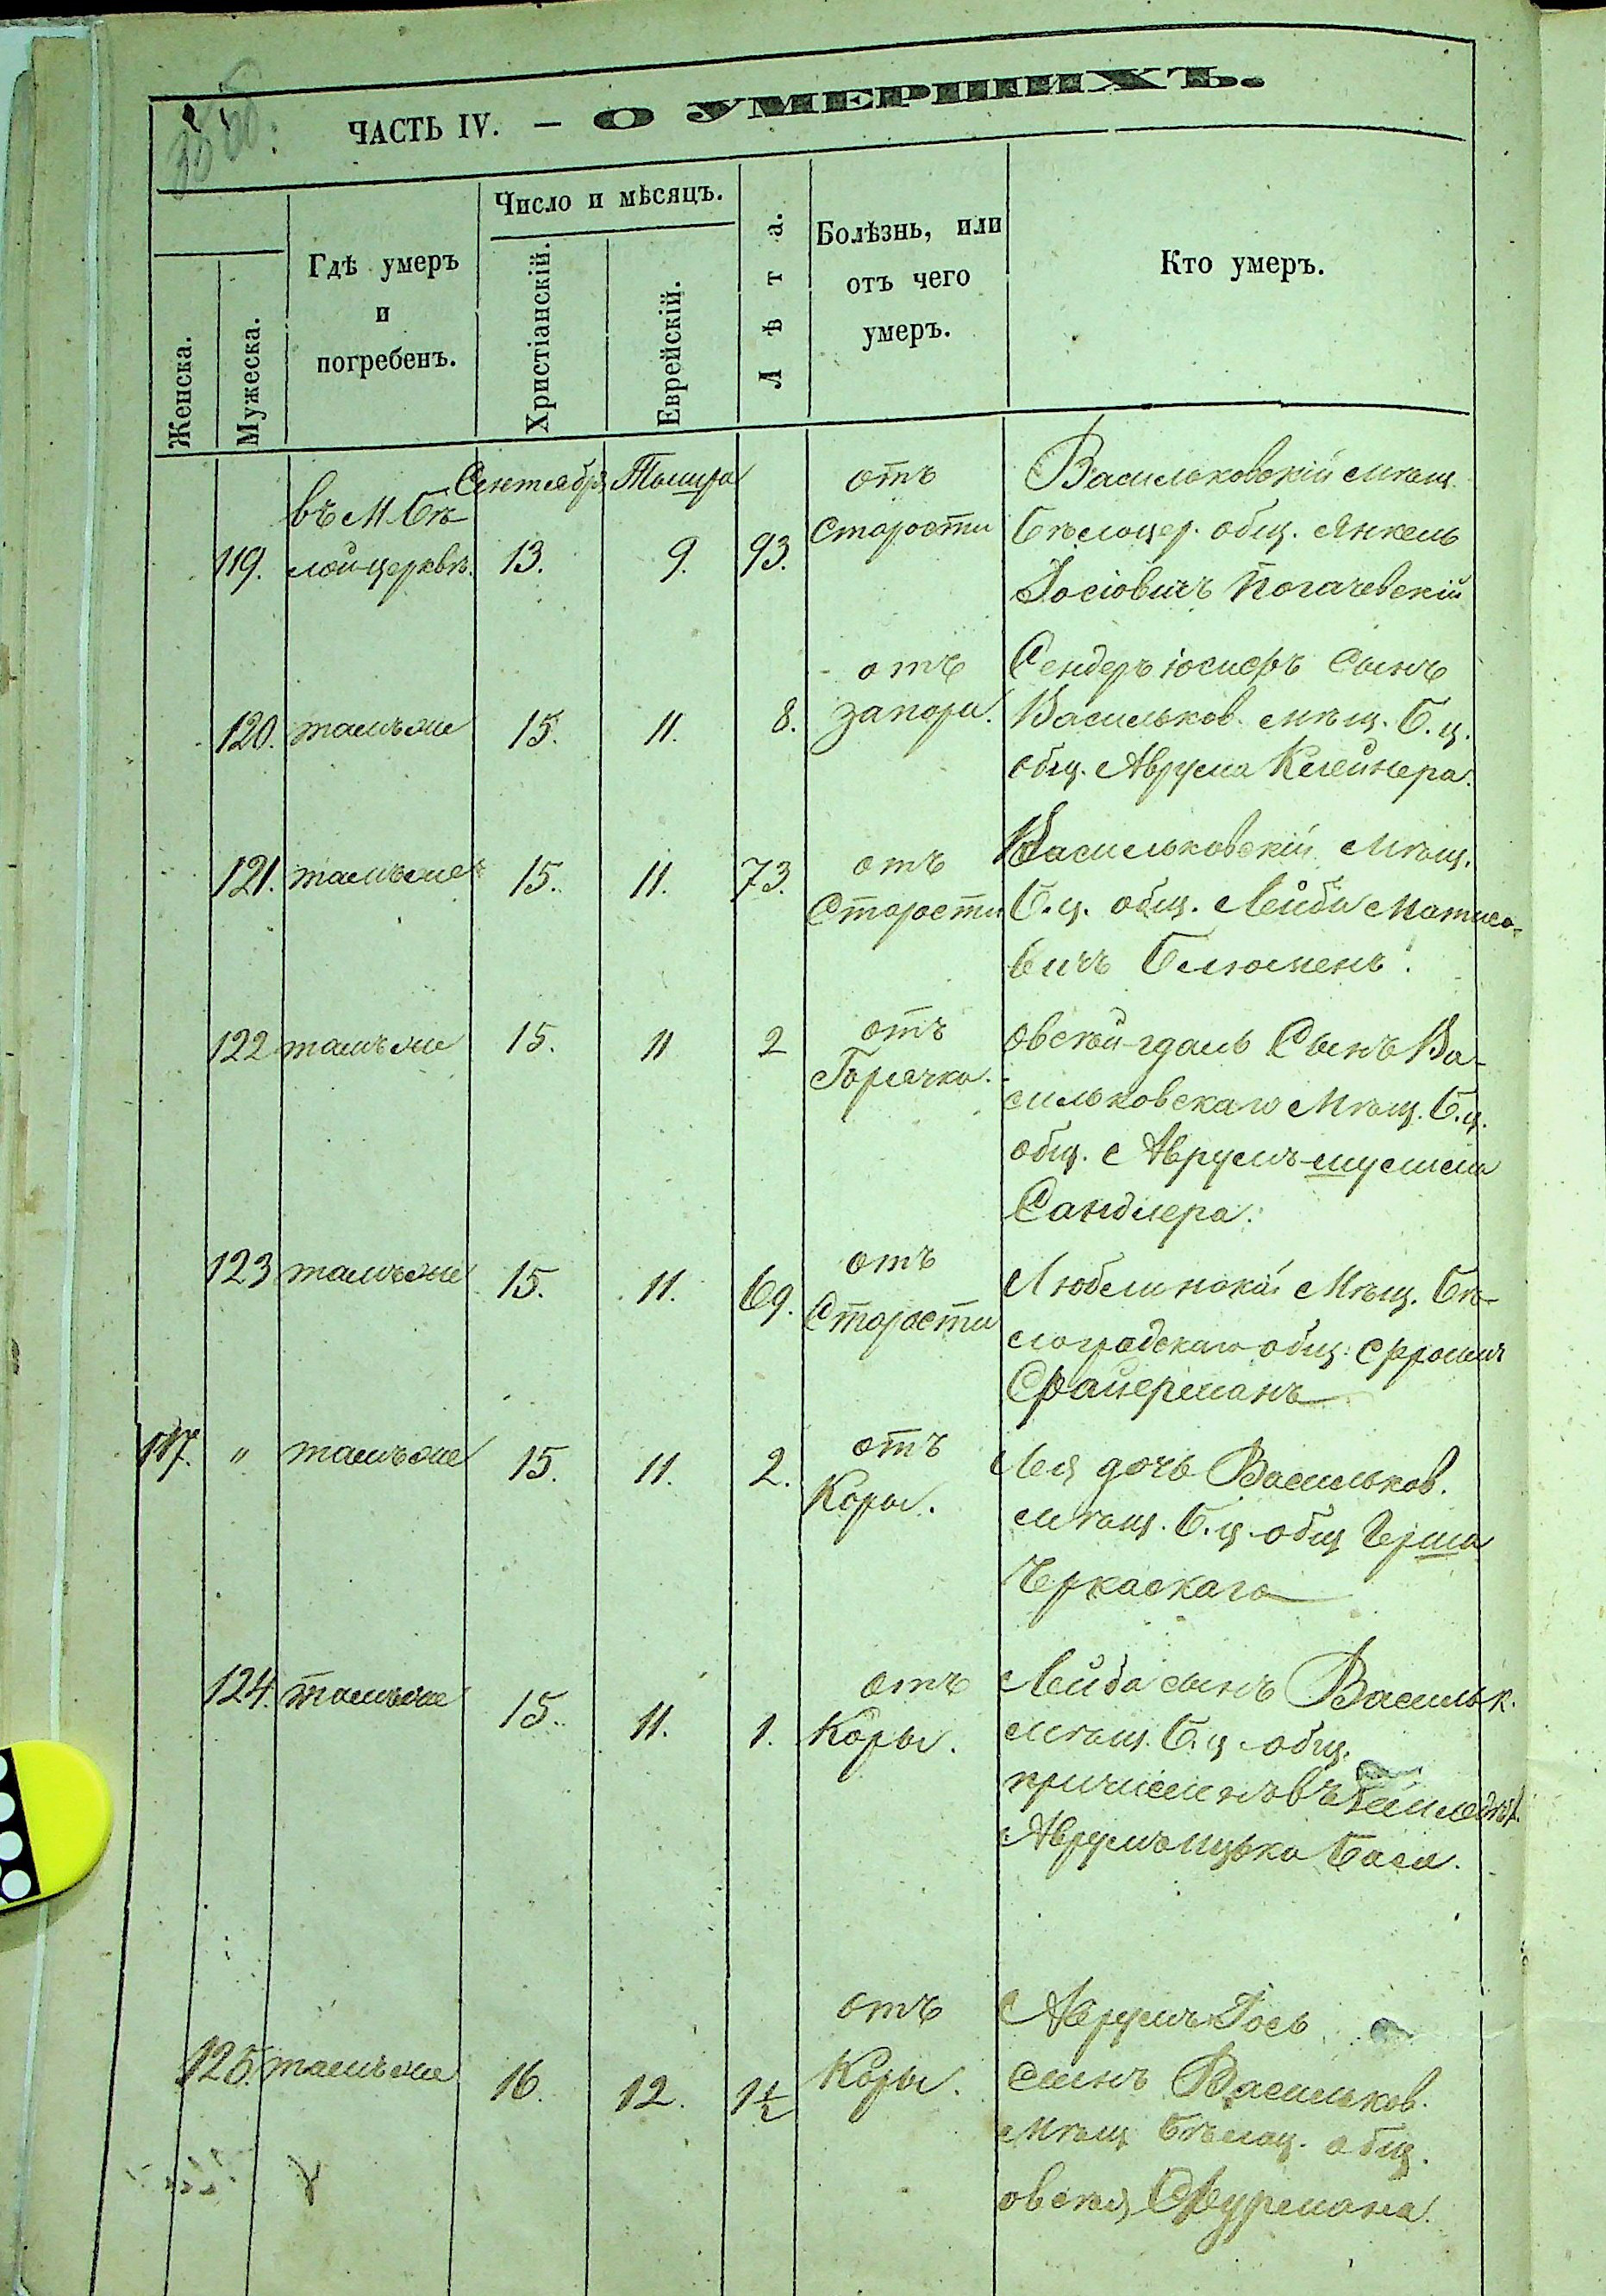 ЧАСТЬ IV. — О УМЕРШИХЪ.
Женска.
Мужеска.
Гдѣ умеръ
и
погребенъ.
Число и мѣсяцъ.
Христіанскій.
Еврейскій.
Лѣта.
Болѣзнь, или
отъ чего
умеръ.
Кто умеръ.
Сентября Тишра
119. въ М. Бѣ-
лой-церквѣ. 13. 9. 93.
отъ
Старости
Васильковскій мѣщ.
Бѣлоцер. общ. Янкель
Іосіовичъ Погачевскій
120. тамъ же 15. 11. 8.
отъ
запора.
Сендеръ іосифъ Сынъ
Васильков. мѣщ. Б. ц.
общ. Аврума Клейнера.
121. тамъ же 15. 11. 73.
отъ
Старости
Васильковскій Мѣщ.
Б. ц. общ. Лейба Матисо-
вичъ Блюменъ.
122 тамъ же 15. 11 2
отъ
Горячка.
овсѣй-гдаль Сынъ Ва-
сильковскаго Мѣщ. Б. ц.
общ. Аврумъ-шулима
Сандлера.
123 тамъ же 15. 11. 69.
отъ
Старости
Мѣщ. Бѣ-
лоградскаго общ. Фроимъ
Файерманъ
117. " тамъ же 15. 11. 2.
отъ
Коры.
Лея дочь Васильков.
мѣщ. Б. ц. общ Герша
Черкаскаго
124. тамъ же 15. 11. 1.
отъ
Коры.
Лейба сынъ Васильк.
мѣщ. Б. ц. общ.
Аврумъ ицька Баса.
125. тамъ же 16. 12. 1½
отъ
Коры.
Аврумъ Іось
сынъ Васильков.
Мѣщ Бѣлоц. общ.
овсѣя Фурмана.